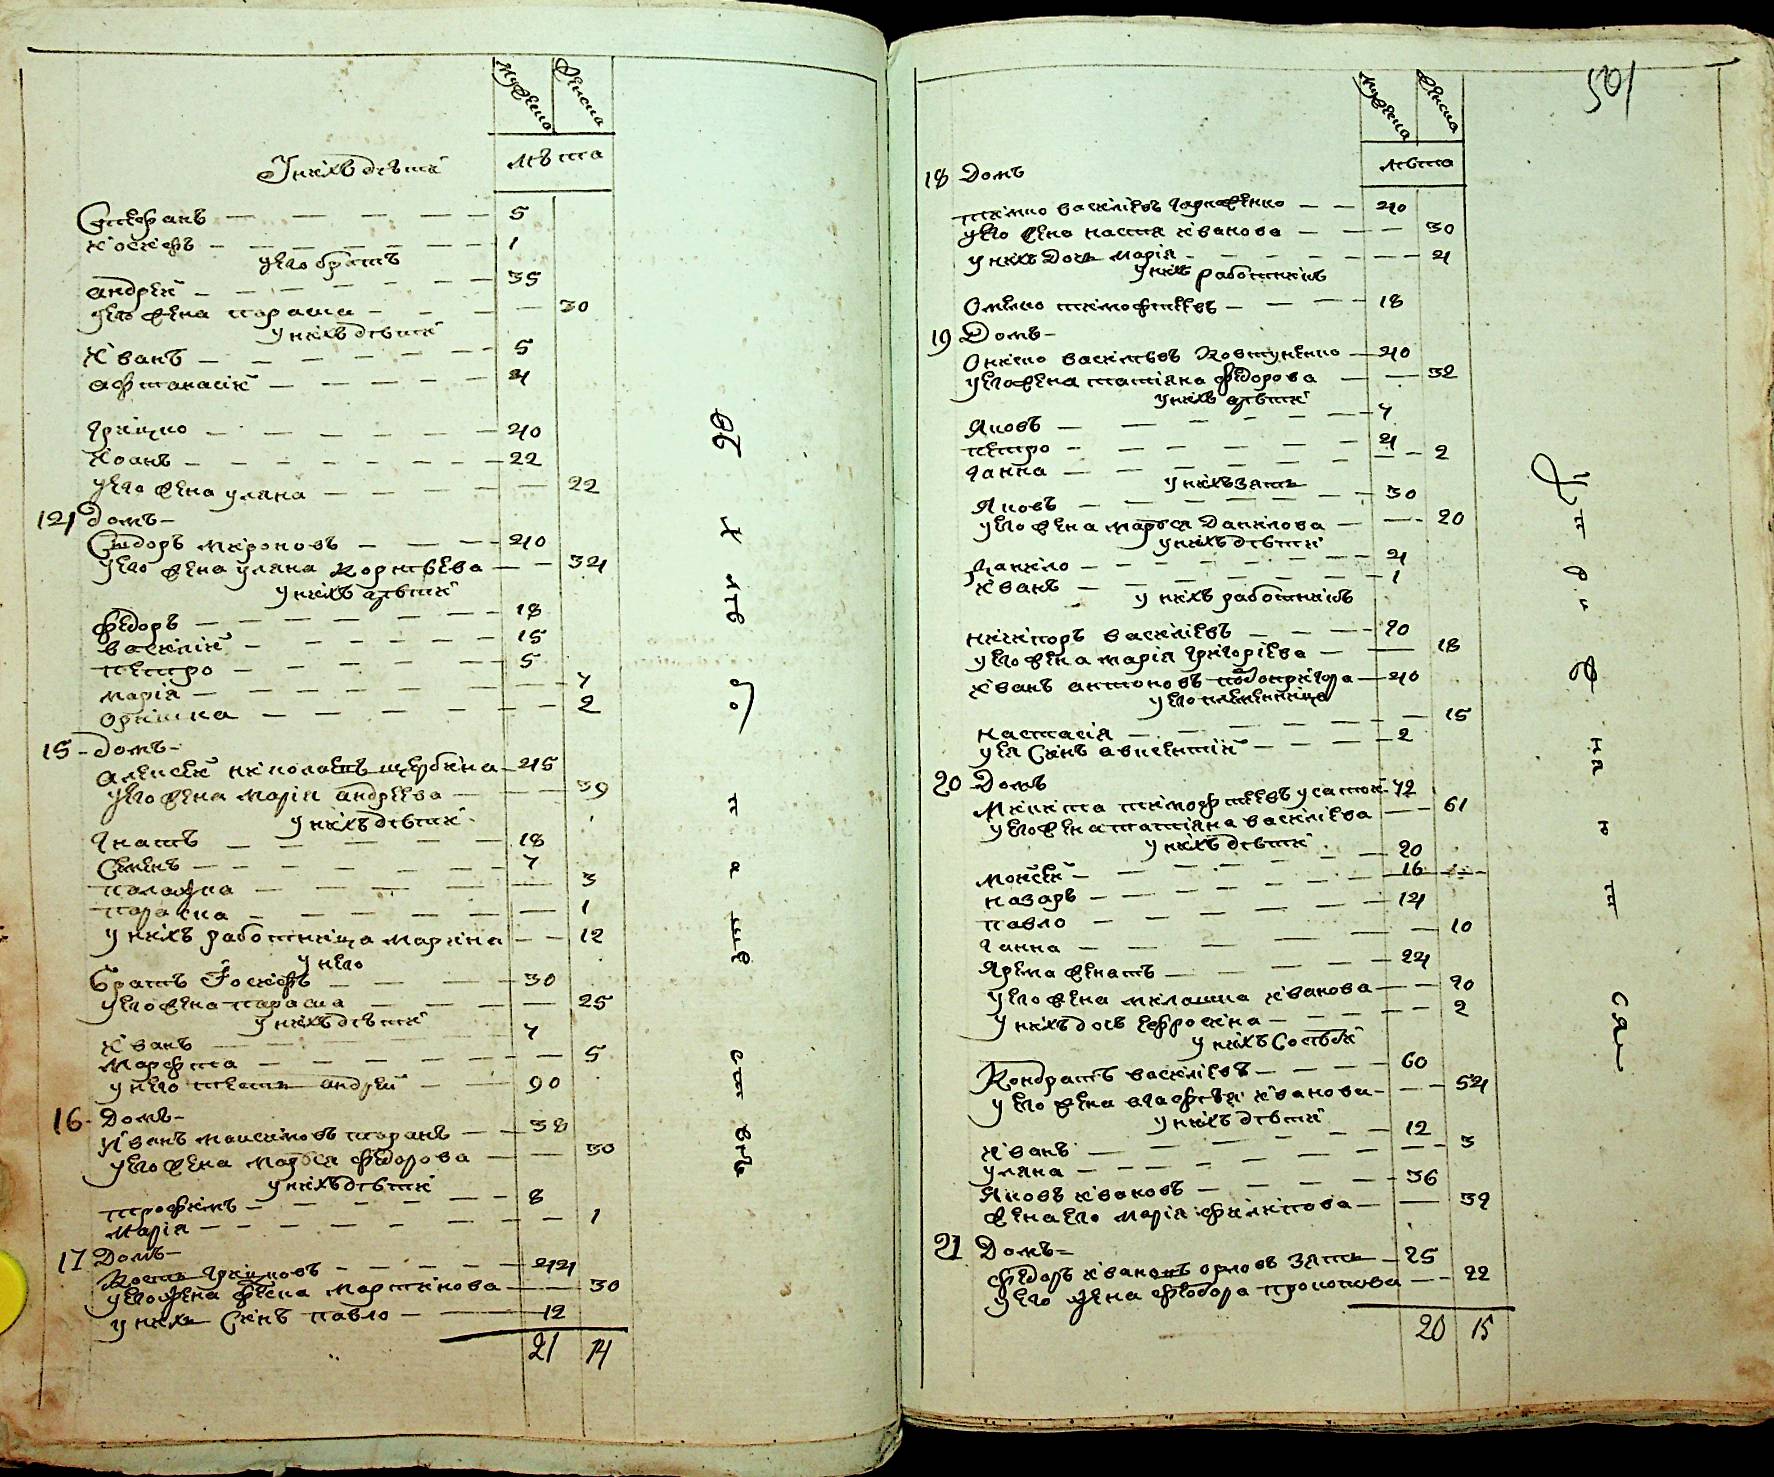 мужеска женска
лѣта
У нихъ дѣти
Стефанъ 5
Иосифъ 1
уего братъ
андрей 35
уего жена параша 30
У нихъ дѣти
Иванъ 5
афтанасий 4
Грицко 40
Иоанъ 22
уего жена уляна 22
14 домъ
Сидоръ мироновъ 40
уего жена уляна Корнѣева 34
У нихъ дѣти
федоръ 18
василий 15
петро 5
марія 7
оришка 2
15 домъ
алексей николаевъ щербина 45
уего жена марія андреева 39
У нихъ дѣти
Игнатъ 18
Семенъ 7
палажка 3
параска 1
у нихъ работница марина 12
у него
братъ Іосифъ 30
уего жена параша 25
У нихъ дѣти
Иванъ 7
марфта 5
у него тесть андрей 90
16 Домъ
Иванъ максимовъ таранъ 38
уего жена маруся федорова 30
У нихъ дѣти
трофимъ 8
марія 1
17 Домъ
Кость Грицковъ 44
уего жена фекла мартинова 30
у нихъ Синъ павло 12
21 14
501
мужеска женска
лѣта
18 Домъ
тимко василіевъ Гарженко 40
уего жена настя Иванова 30
у нихъ дочь марія 4
у нихъ работникъ
Омелко тимофтеевъ 18
19 Домъ
Ониско василіевъ Ковтуненко 40
уего жена татіяна федорова 32
у нихъ дѣти
Яковъ 7
петро 4
Ганна 2
у нихъ зять
Яковъ 30
уего жена маруся Данилова 20
у нихъ дѣти
Данило 4
Иванъ 1
у нихъ работникъ
никипоръ василіевъ 20
уего жена марія Григоріева 18
Иванъ антоновъ подопригора 40
уего племенница
настасія 15
уея Синъ авксентій 2
20 Домъ
Микита тимофтеевъ усатой 72
уего жена татіяна василіева 61
у нихъ дѣти
мойсей 20
назаръ 16
павло 14
Ганна 10
Ярема женатъ 24
уего жена милашка Иванова 20
у нихъ дочь ефросина 2
у нихъ Сосѣди
Кондратъ василіевъ 60
уего жена агафтия Иванова 54
у нихъ дѣти
Иванъ 12
уляна 3
Яковъ Ивановъ 36
жена его марія филипова 32
21 Домъ
федоръ Ивановъ орловъ зять 25
уего жена феодора прокопова 22
20 15